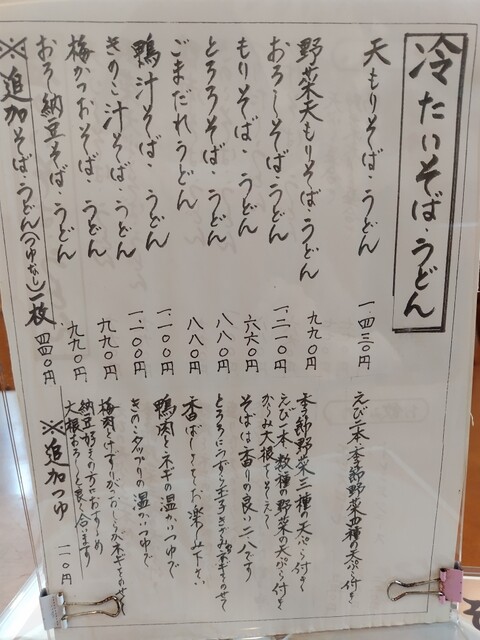 冷たいそば・うどん
天もりそば・うどん 一.四三〇円 えび二本・季節野菜四種の天ぷら付き
野菜天もりそば・うどん 九九〇円 季節野菜三種の天ぷら付き
おろしそば・うどん 一.二一〇円 えび一本・数種の野菜の天ぷら付き
からみ大根でそえて
もりそば・うどん 六六〇円 そばは香りの良い二八です
とろろそば・うどん 八八〇円 とろろにうずら玉子きざみのせて
ごまだれうどん 八八〇円 香ばしさをお楽しみ下さい
鴨汁そば・うどん 一.一〇〇円 鴨肉とネギの温かいつゆで
きのこ汁そば・うどん 一.一〇〇円 きのこタップリの温かいつゆで
梅かつおそば・うどん 九九〇円 梅肉とけずりがつおのせて
おろし納豆そば・うどん 九九〇円 納豆好きの方におすすめ
大根おろしと良く合います
※追加そば・うどん(つゆなし)一枚 四四〇円
※追加つゆ 一一〇円